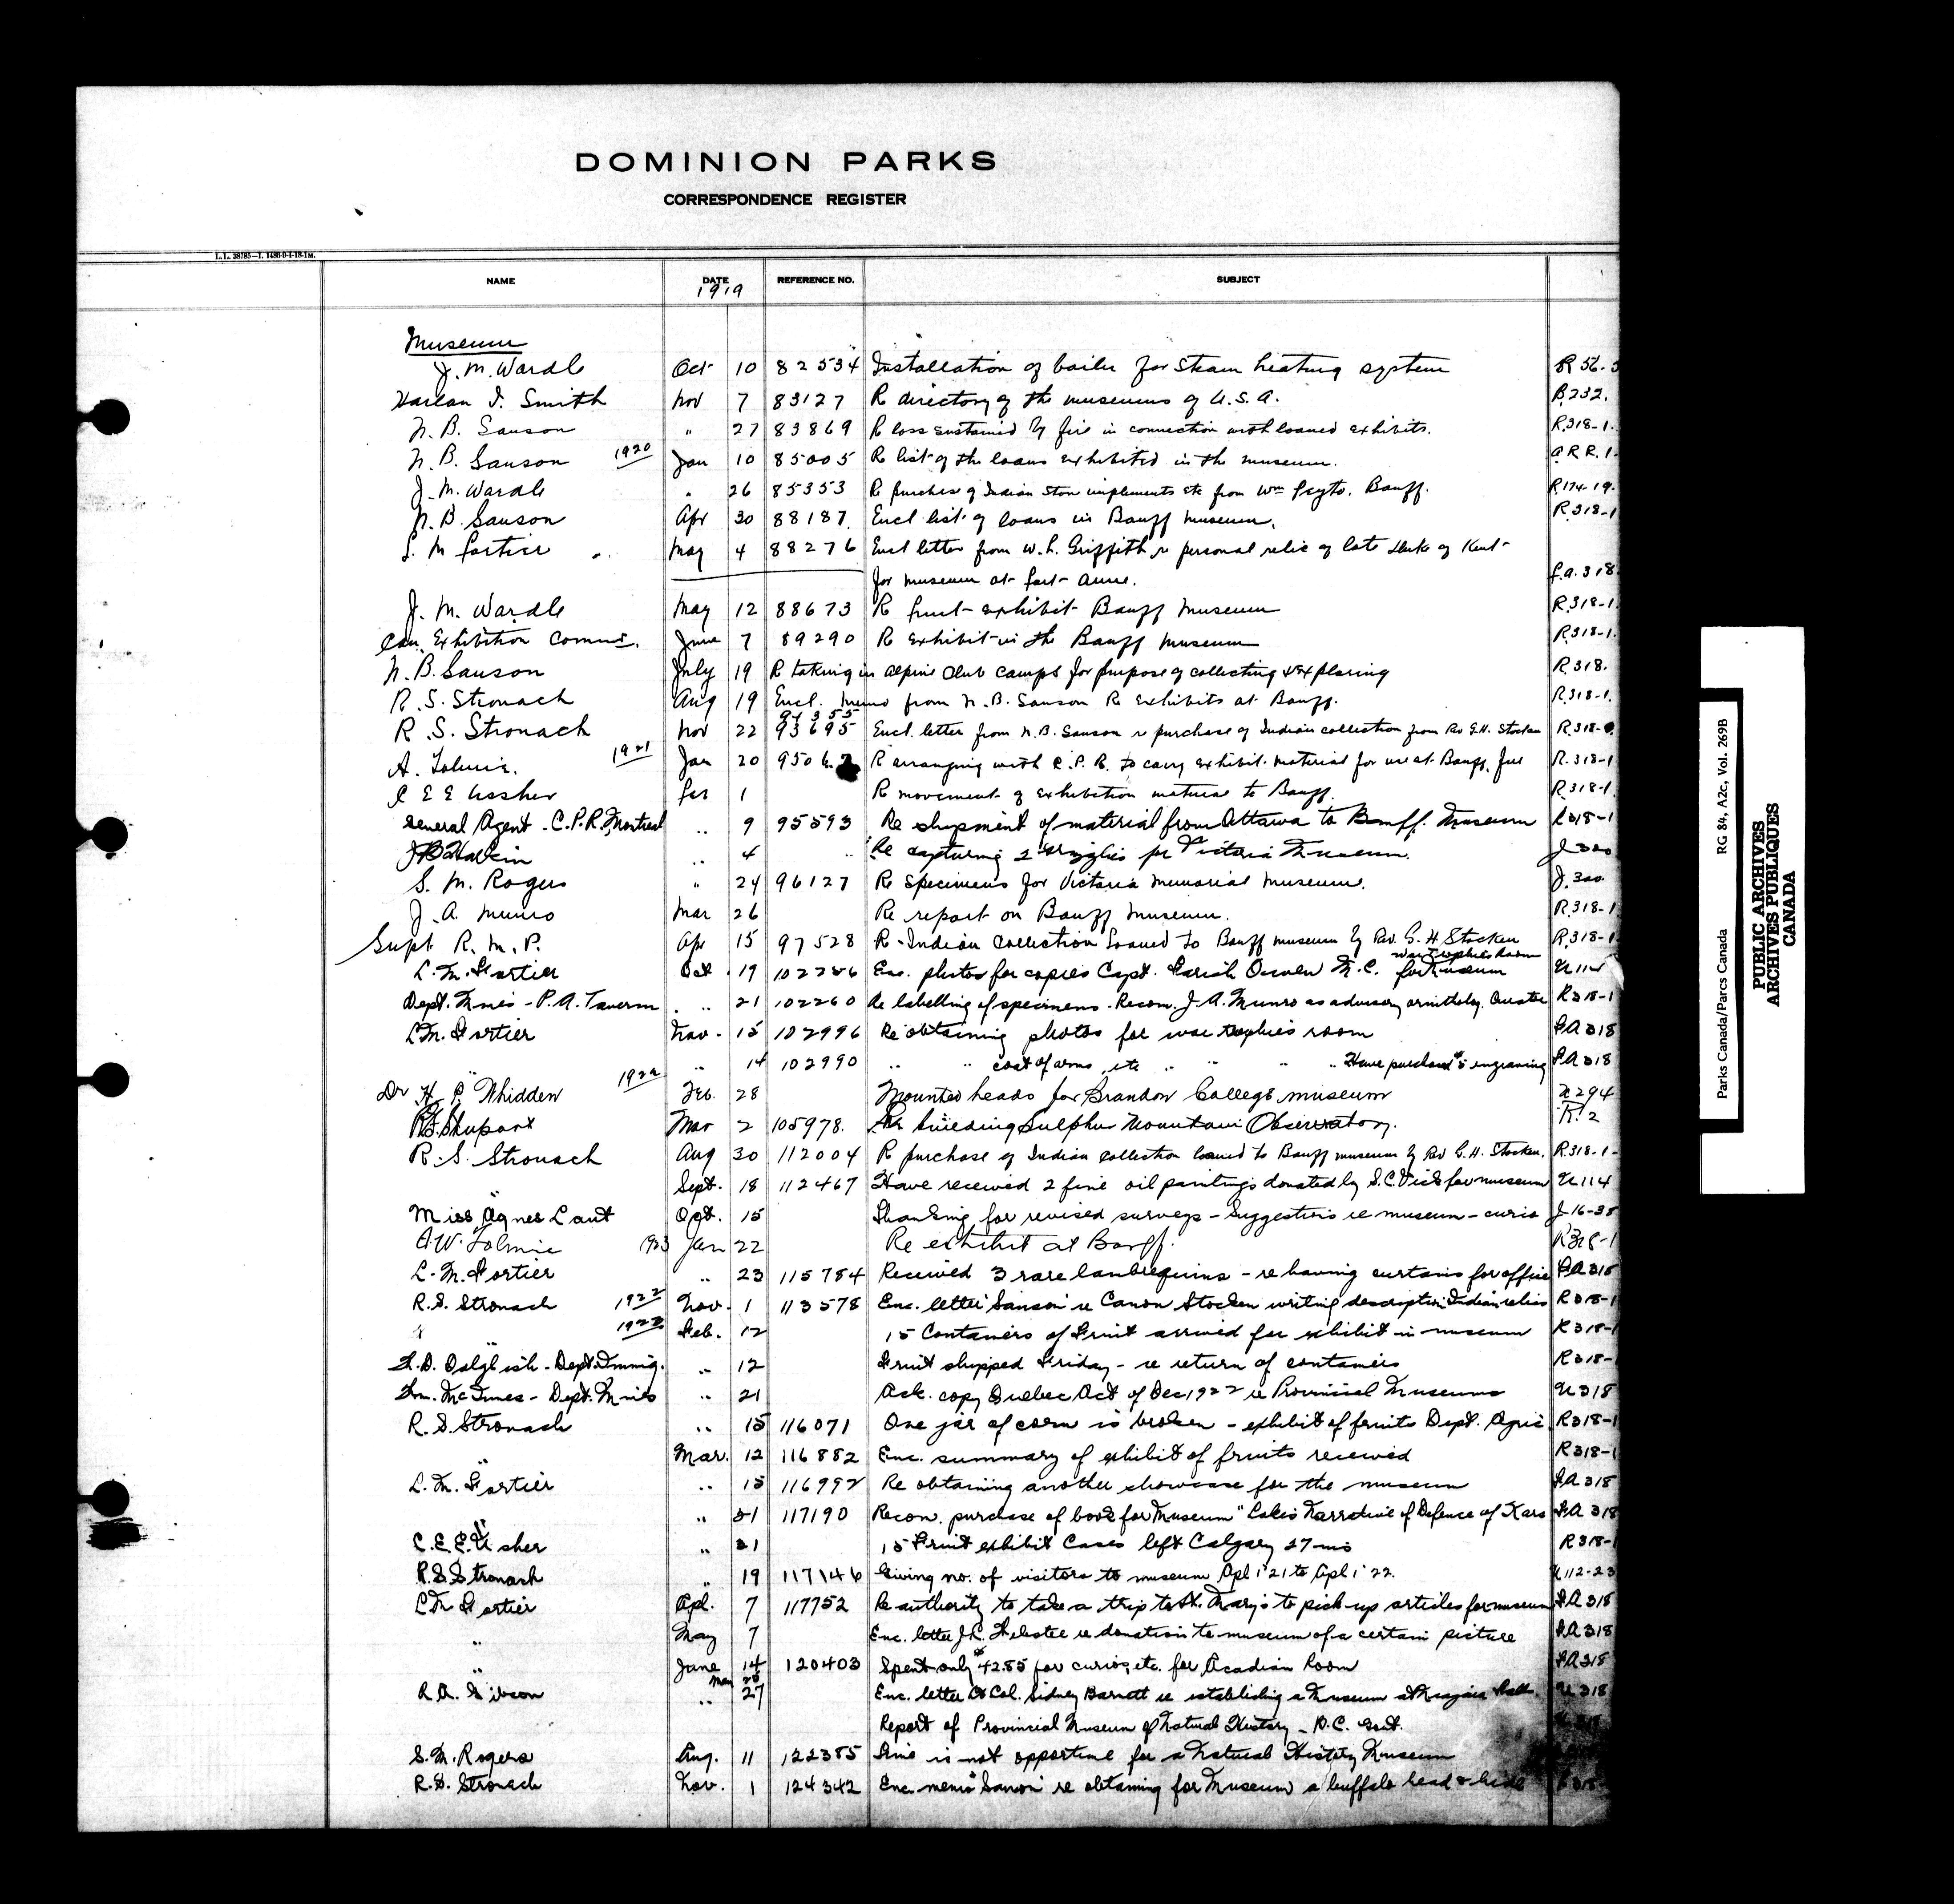 DOMINION PARKS
CORRESPONDENCE REGISTER
L.L. 38785—I. 1486-9-4-18-1M.
NAME DATE REFERENCE NO. SUBJECT
1919
Museum
J. M. Wardle Oct 10 82534 Installation of boiler for steam heating system R 56-
Harlan I. Smith Nov 7 83127 R directory of the museums of U.S.A. B.232.
N. B. Sanson " 27 83869 R loss sustained by fire in connection with loaned exhibits. R.318-1.
N. B. Sanson 1920 Jan 10 85005 R list of the loans exhibited in the museum. A R R. 1.
J. M. Wardle " 26 85353 R purchase of Indian stone implements etc from Wm Peyto, Banff. R.174-19.
N. B. Sanson Apr 30 88187. Encl list of loans in Banff Museum. R.318-1
L. M. Fortier May 4 88276 Encl letter from W. L. Griffith re personal relic of late Duke of Kent
for museum at Fort Anne. F.A.318
J. M. Wardle May 12 88673 R fruit exhibit Banff Museum R.318-1
Can. Exhibition Comm. June 7 89290 R exhibit in the Banff Museum R.318-1.
N. B. Sanson July 19 R taking in Alpine Club camps for purpose of collecting & exploring R.318.
R. S. Stronach Aug 19 91355 Encl. memo from N. B. Sanson Re exhibits at Banff. R.318-1.
R. S. Stronach Nov 22 93695 Encl. letter from N. B. Sanson re purchase of Indian collection from Rev G.H. Stocken R.318-
A. Tolmie. 1921 Jan 20 9506 R arranging with C.P.R. to carry exhibit material for use at Banff, free R.318-1
C E E Ussher Feb 1 R movement of exhibition material to Banff. R.318-1.
General Agent - C.P.R. Montreal " 9 95593 Re shipment of material from Ottawa to Banff Museum R318-1
J B Harkin " 4 Re capturing 2 for Victoria Museum. J 300
S. M. Rogers " 24 96127 Re Specimens for Victoria Memorial Museum. J. 300
J. A. Munro Mar 26 Re report on Banff Museum. R.318-1
Supt R. M. P. Apr 15 97528 R Indian Collection loaned to Banff museum by Rev. G. H Stocken R.318-1
War Trophies Room
L. M. Fortier Oct 19 102256 Enc. photos for copies Capt. Parish Owen M.C. for museum U 114
Dept. Mines - P. A. Taverner " 21 102260 Re labelling of specimens. Recom. J. A. Munro as advisory ornitholog. Curator R318-1
L.M. Fortier Nov. 15 102996 Re obtaining photos for war trophies room F.A 318
" 14 102990 " " coat of arms, etc " " " Have purchased 5 engraving F.A 318
Dr H. P. Whidden 1922 Feb. 28 Mounted heads for Brandon College museum U 294
Mar 2 105978. Re building Sulphur Mountain Observatory. R. 2
R. S. Stronach Aug 30 112004 R purchase of Indian collection loaned to Banff museum by Rev G. H. Stocken. R.318-1-
" Sept. 18 112467 Have received 2 fine oil paintings donated by S.C. for museum U 114
Miss Agnes Laut Oct. 15 Thanking for revised surveys - Suggestions re museum - curio J-16-
A.W. Tolmie 1923 Jan 22 Re exhibit at Banff. R318-1
L. M. Fortier " 23 115784 Received 3 rare lambrequins - re having curtains for office F.A 318
R.S. Stronach 1922 Nov. 1 113578 Enc. letter Sanson re Canon Stocken writing description Indian relics R318-1
" 1923 Feb. 12 15 Containers of Fruit arrived for exhibit in museum R318-1
F.D. Dalgleish - Dept. Immig. " 12 Fruit shipped Friday - re return of containers R318-
Wm. McInnes - Dept. Mines " 21 Ack. copy Quebec Act of Dec 1922 re Provincial Museums U318
R. S. Stronach " 15 116071 One jar of corn is broken - exhibit of fruits Dept. Agric. R318-1
" Mar. 12 116882 Enc. summary of exhibit of fruits received R318-1
L. M. Fortier " 15 116992 Re obtaining another showcase for the museum F.A 318
" " 21 117190 Recom. purchase of book for Museum "Lake's Narrative of Defence of Kars F.A 318
C.E.E. Ussher " 21 15 Fruit exhibit Cases left Calgary 27 R318-1
R.S. Stronach " 19 117146 Giving no. of visitors to museum Apl 1 '21 to Apl 1 '22. U112-23
L M Fortier Apl. 7 117752 Re authority to take a trip to St. Mary's to pick up articles for museum F.A 318
" May 7 Enc. letter J.C. Webster re donation to museum of a certain picture F.A 318
" June 14 120403 Spent only $42.85 for curios, etc. for Acadian Room F.A 318
May 28
R A. Gibson " 27 Enc. letter Col. Sidney Barnett re establishing a Museum at Niagara Falls. U 318
Report of Provincial Museum of Natural History - B.C. Govt. U 318
S. M. Rogers Aug. 11 122385 Time is not opportune for a Natural History Museum
R.S. Stronach Nov. 1 124342 Enc memo Sanson re obtaining for Museum a buffalo head & hide
Parks Canada/Parcs Canada RG 84, A2c, Vol. 269B
PUBLIC ARCHIVES
ARCHIVES PUBLIQUES
CANADA